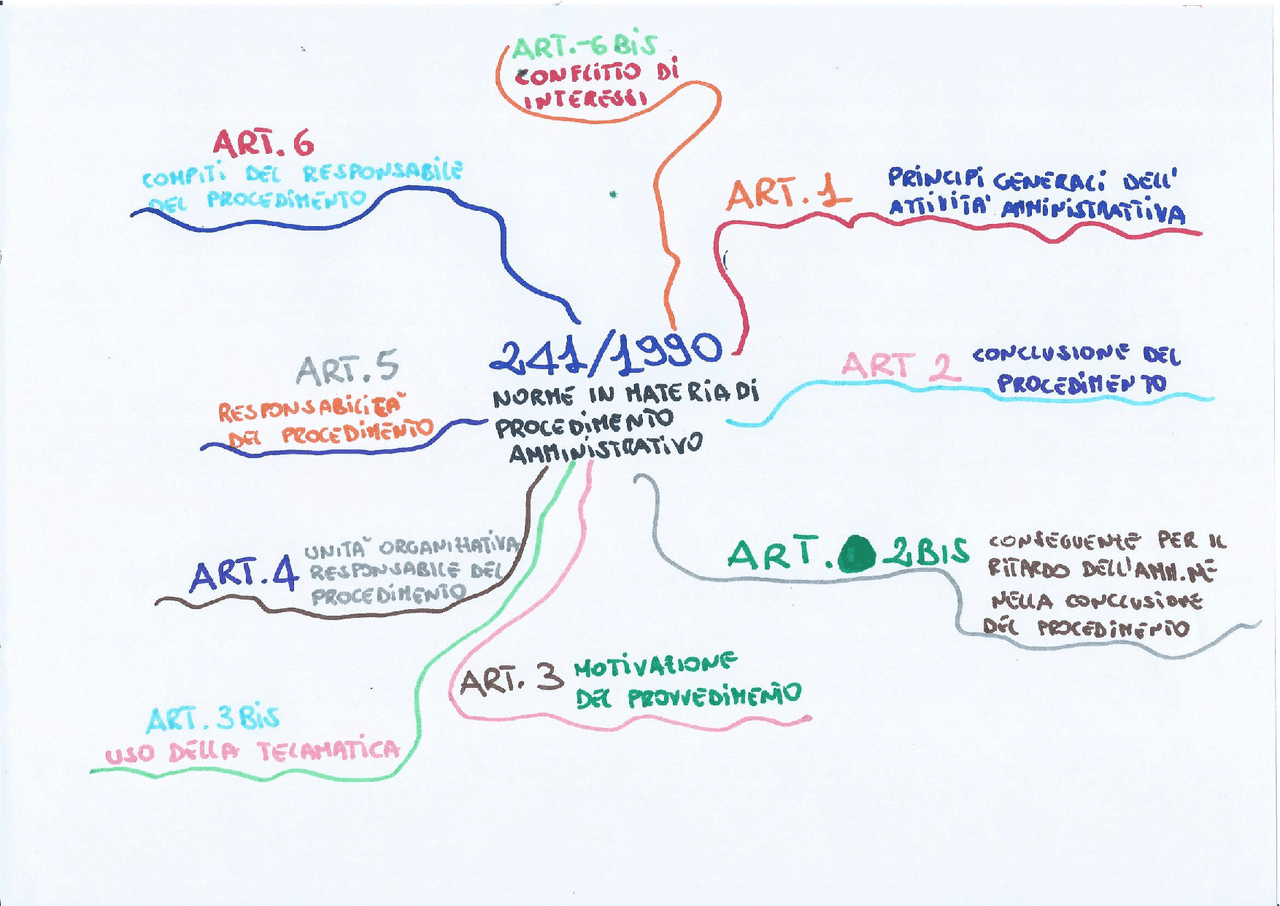 ART.-6 BiS
CONFLITTO Di
INTERESSI
ART. 6
COMPITI DEL RESPONSABILE
DEL PROCEDIMENTO
ART. 1
PRINCIPI GENERALI DELL'
ATTIVITA' AMMINISTRATTIVA
241/1990
NORME IN MATERIA DI
PROCEDIMENTO
AMMINISTRATIVO
ART 2
CONCLUSIONE DEL
PROCEDIMENTO
ART. 5
RESPONSABILITA'
DEL PROCEDIMENTO
ART. 2BIS
CONSEGUENTE PER IL
RITARDO DELL'AMM.NE
NELLA CONCLUSIONE
DEL PROCEDIMENTO
ART. 4
UNITA' ORGANIZZATIVA
RESPONSABILE DEL
PROCEDIMENTO
ART. 3
MOTIVAZIONE
DEL PROVVEDIMENTO
ART. 3 BiS
USO DELLA TELAMATICA